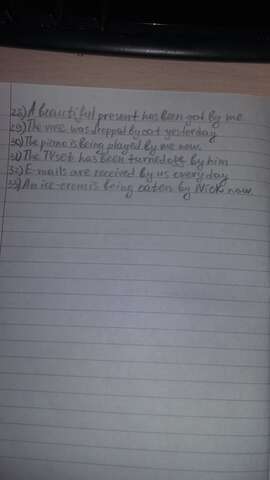 28) A beautiful present has been got by me
29) The vase was dropped by cat yesterday
30) The piano is being played by me now.
31) The TV set has been turned off by him
32) E-mails are received by us every day
33) An ice-crem is being eaten by Nick now.